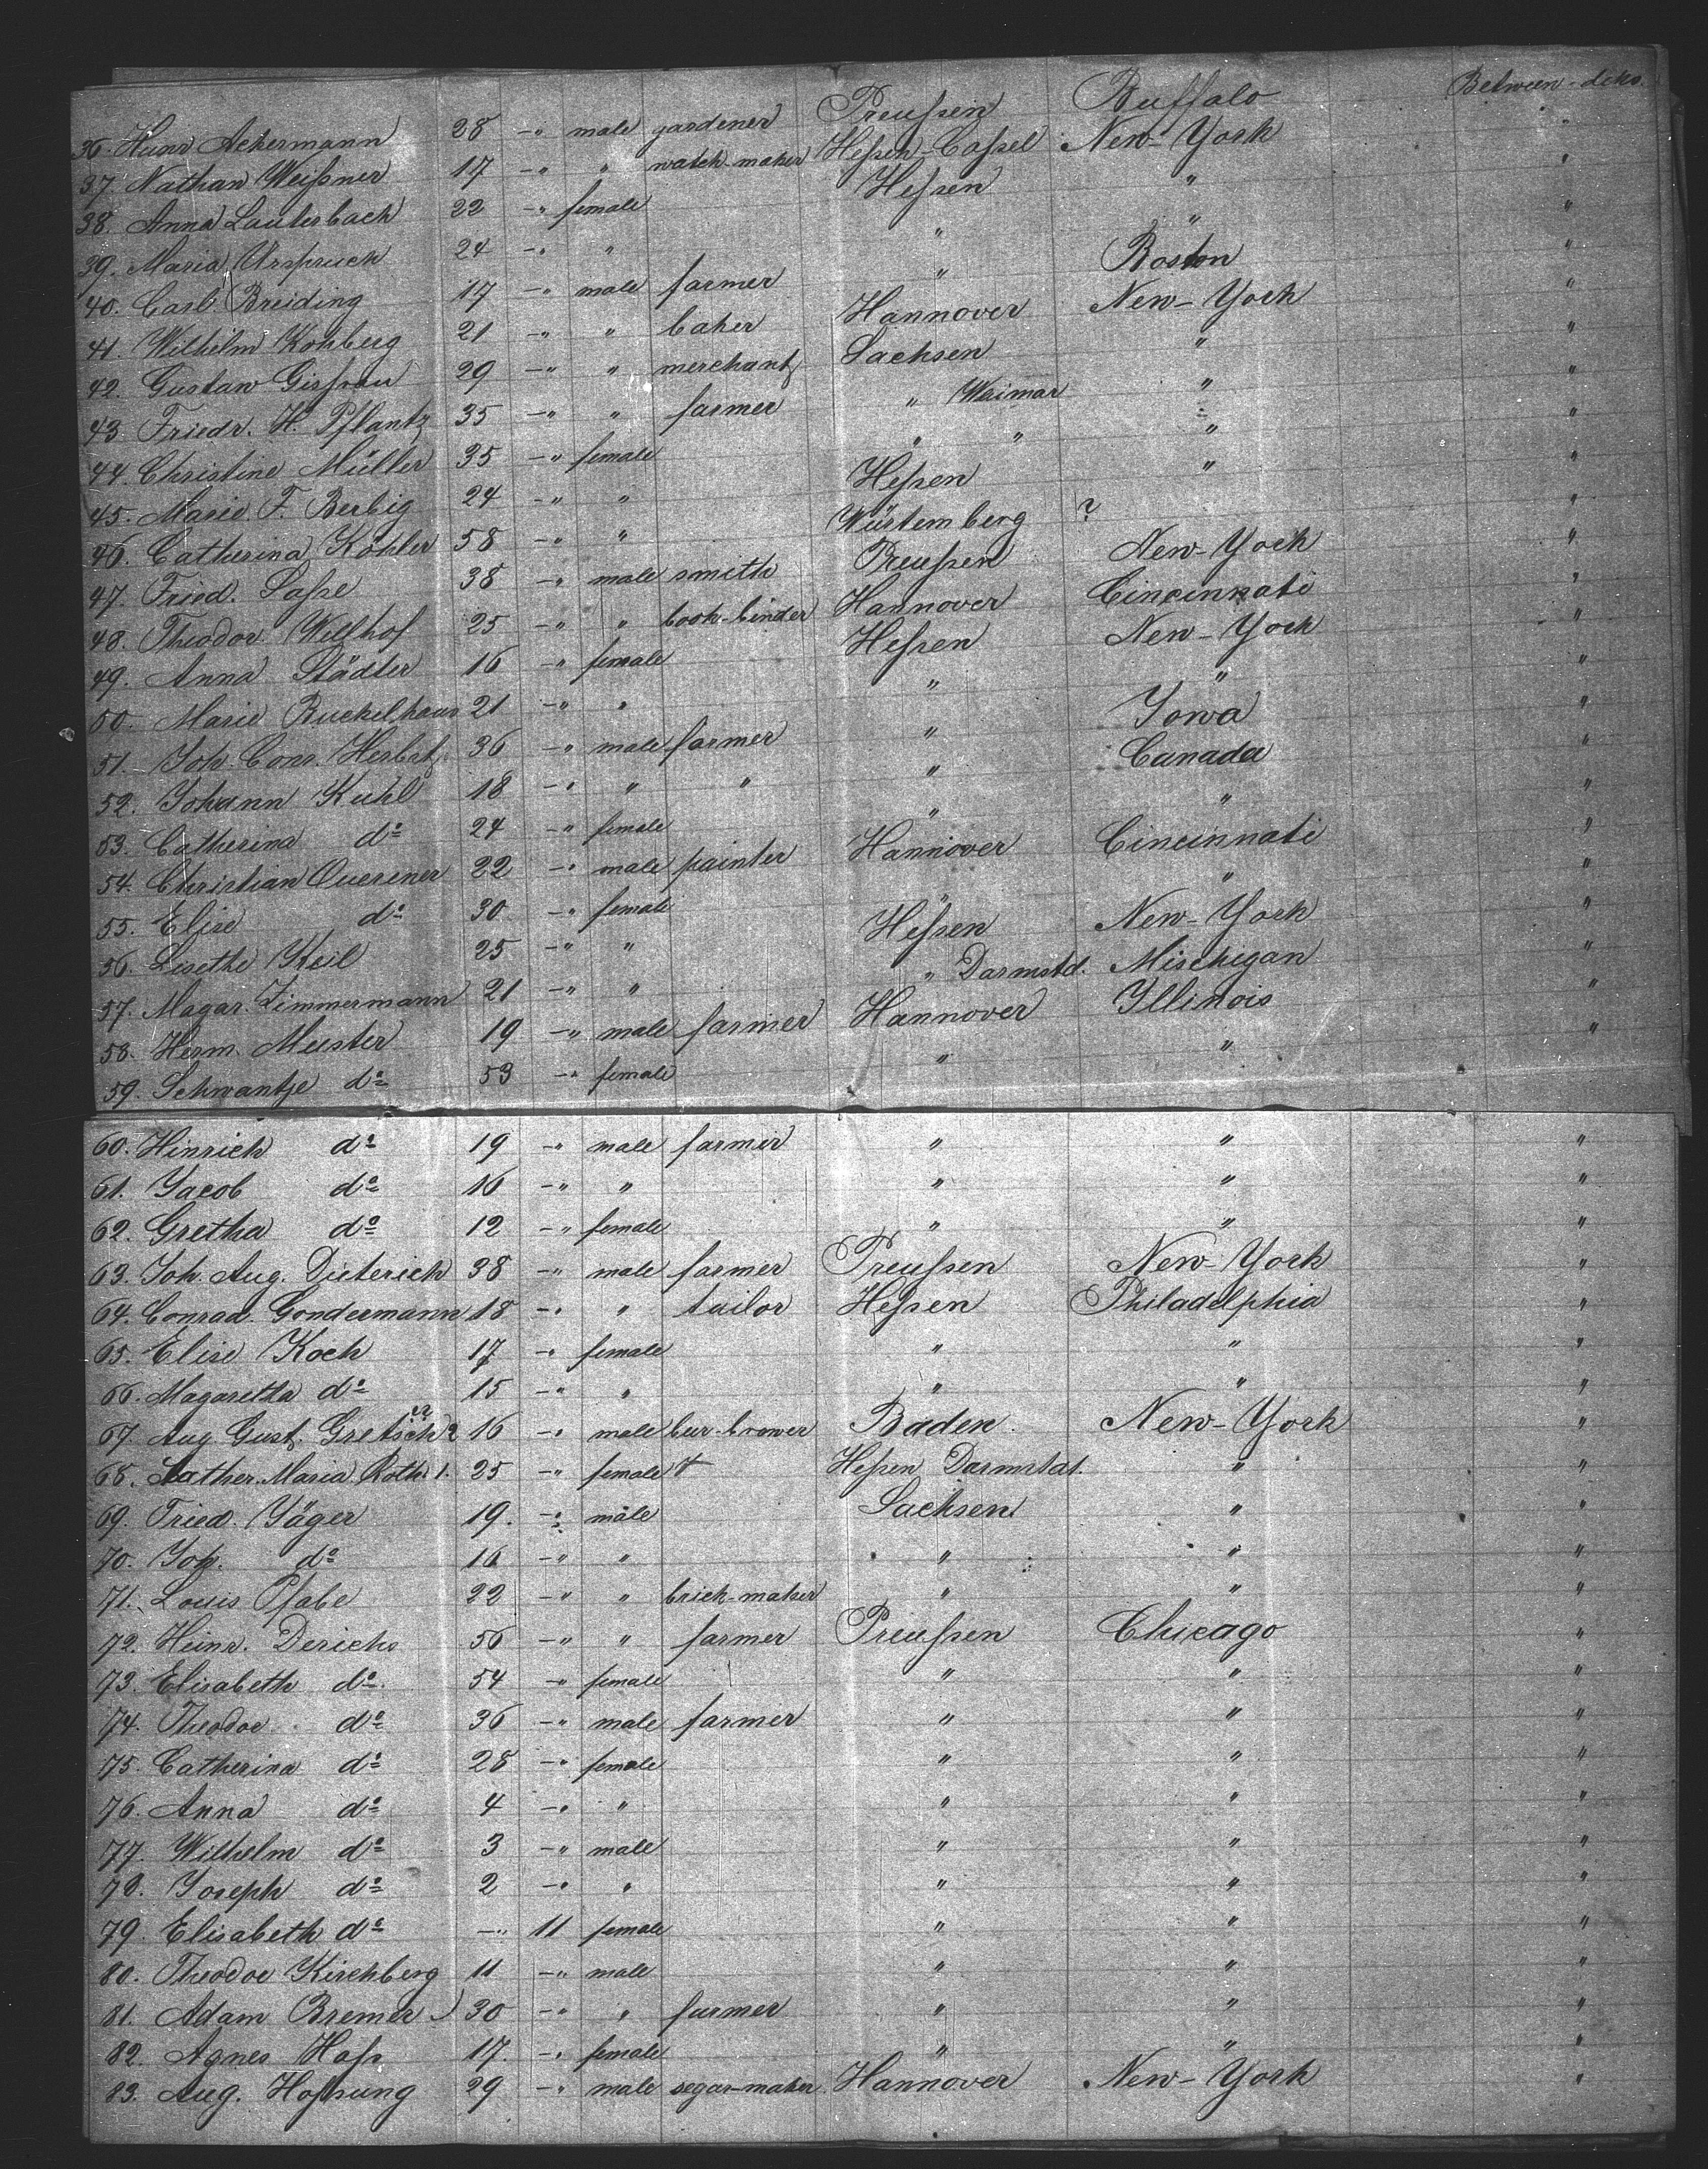 Between-deks.
36. Heinr Ackermann 28 -" male gardener Preußen Buffalo "
37. Nathan Weißner 17 -" " watch-maker Heßen-Caßel New-York "
38. Anna Lauterbach 22 -" female Heßen " "
39. Maria Urspruch 24 -" " " " "
40. Carl Breiding 17 -" male farmer " Boston "
41. Wilhelm Kohberg 21 -" " baker Hannover New-York "
42. Gustav 29 -" " merchant Sachsen " "
43. Friedr. H. Pflantz 35 -" " farmer " Weimar " "
44. Christine Müller 35 -" female " " " "
45. Marie F. Berbig 24 -" " Heßen " "
46. Catherina Köhler 58 -" " Würtemberg ? "
47. Fried. Saße 38 -" male smith Preußen New-York "
48. Theodor Willhof 25 -" " book-binder Hannover Cincinnati "
49. Anna Städter 16 -" female Heßen New-York "
50. Marie Buckelhaus 21 -" " " " "
51. Joh. Conr. Herbst 36 -" male farmer " Iowa "
52. Johann Kuhl 18 -" " " " Canada "
53. Catherina do 24 -" female " " "
54. Christian Querener 22 -" male painter Hannover Cincinnati "
55. Elise do 30 -" female " " "
56. Lisethe Keil 25 -" " Heßen New-York "
57. Magar. Zimmermann 21 -" " " Darmstd. Mischigan "
58. Herm. Muster 19 -" male farmer Hannover Illinois "
59. Schwantje do 53 -" female " " "
60. Hinrich do 19 -" male farmer " " "
61. Jacob do 16 -" " " " "
62. Gretha do 12 -" female " " "
63. Joh. Aug. Dieterich 38 -" male farmer Preußen New-York "
64. Conrad. Gondermann 18 -" " tailor Heßen Philadelphia "
65. Elise Koch 17 -" female " " "
66. Magaretha do 15 -" " " " "
67. Aug. Gust. Gretsch 2 16 -" male beer-brower Baden New-York "
68. Cather. Maria Roth 1. 25 -" female Heßen Darmstat. " "
69. Fried. Jäger 19. -" male Sachsen " "
70. Joh. do 16 -" " " " "
71. Louis Pfabe 22 -" " brick-maker " " "
72. Heinr. Derichs 56 -" " farmer Preußen Chicago "
73. Elisabeth do 54 -" female " " "
74. Theodor do 36 -" male farmer " " "
75. Catherina do 28 -" female " " "
76. Anna do 4 -" " " " "
77. Wilhelm do 3 -" male " " "
78. Joseph do 2 -" " " " "
79. Elisabeth do -" 11 female " " "
80. Theodor Kirchberg 11 -" male " " "
81. Adam Bremer 30 -" " farmer " " "
82. Agnes Haß 17. -" female " " "
83. Aug. Hoßung 29 -" male segar-maker Hannover New-York "